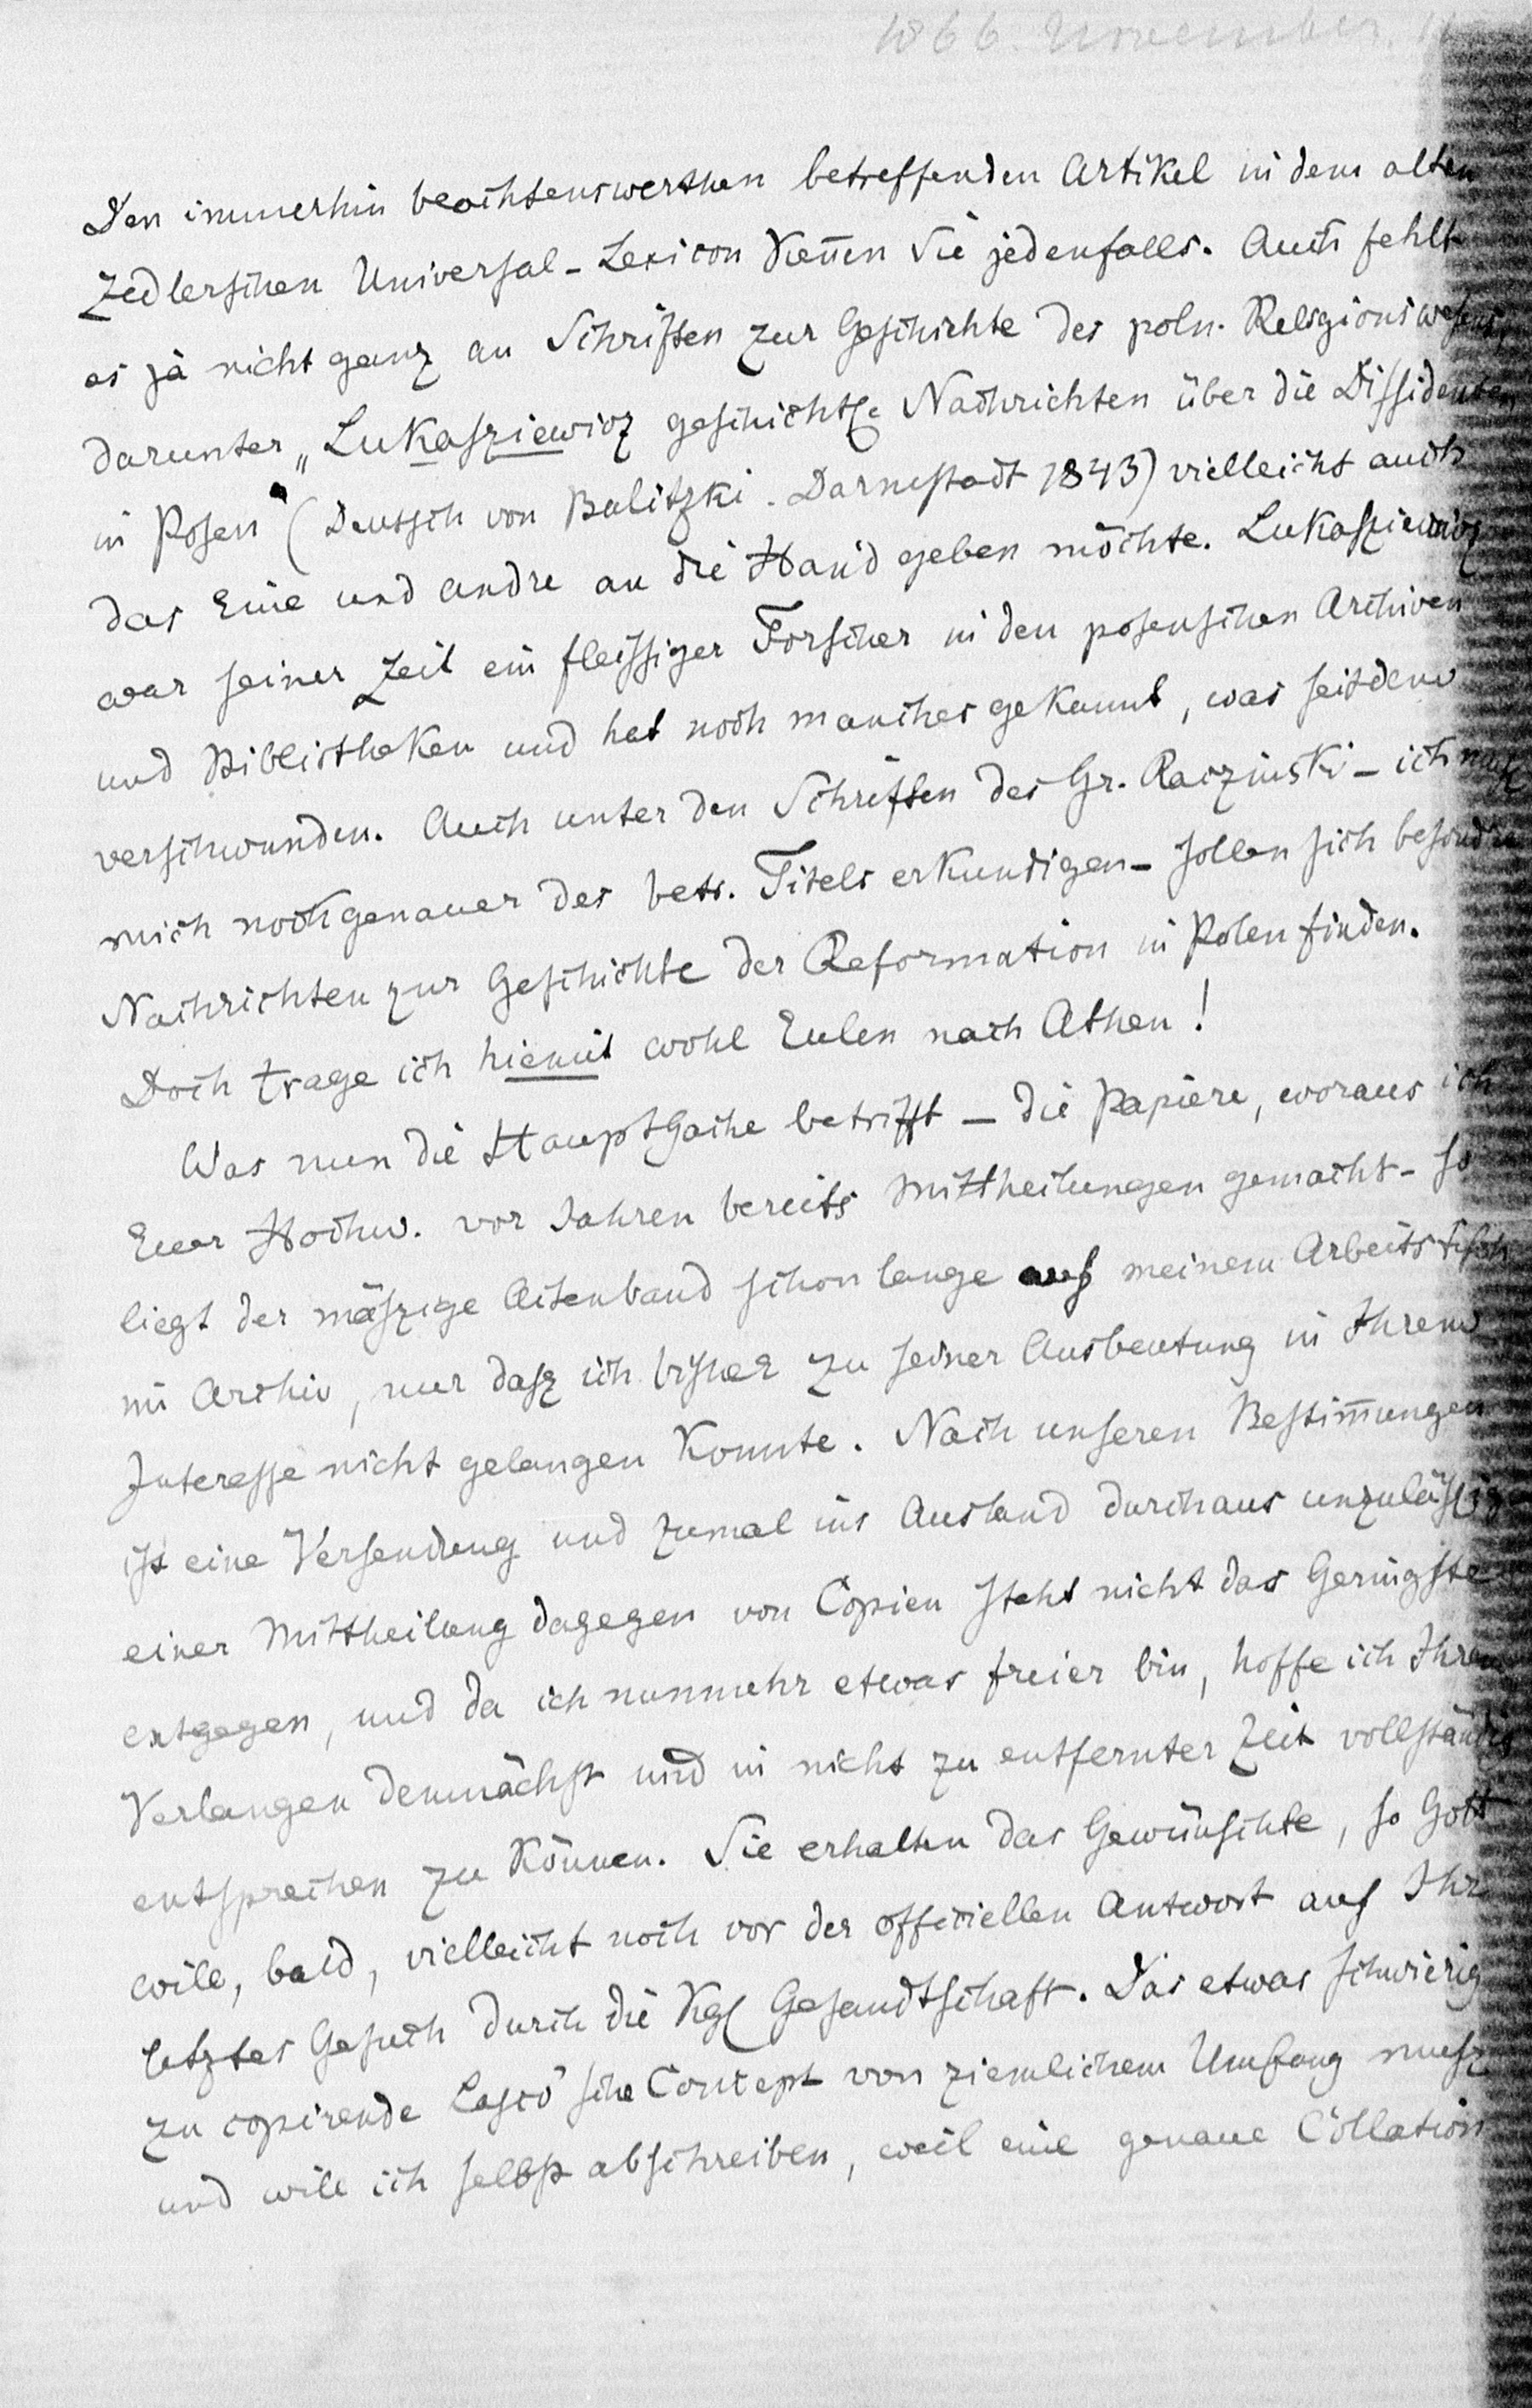 1866. November. 11
Den immerhin beachtenswerthen betreffenden Artikel in dem alten
Zedlerschen Universal-Lexicon kennen Sie jedenfalls. Auch fehlt
es ja nicht ganz an Schriften zur Geschichte des poln. Religionswesens,
darunter „Lukasziewicz geschichtl. Nachrichten über die Dissidenten
in Posen“ (Deutsch von Balitzki. Darmstadt 1843) vielleicht auch
das Eine und andre an die Hand geben möchte. Lukasziewicz
war seiner Zeit ein fleissiger Forscher in den posenschen Archiven
und Bibliotheken und hat noch manches gekannt, was seitdem
verschwunden. Auch unter den Schriften des Gr. Raczinski – ich muß
mich noch genauer des betr. Titels erkundigen – sollen sich besondre
Nachrichten zur Geschichte der Reformation in Polen finden.
Doch trage ich hiemit wohl Eulen nach Athen!
Was nun die Hauptsache betrifft – die Papiere, woraus ich
Euer Hochw. vor Jahren bereits Mittheilungen gemacht – so
liegt der mäszige Actenband schon lange auf meinem Arbeitstisch
im Archiv, nur dasz ich bisher zu seiner Ausbeutung in Ihrem
Interesse nicht gelangen konnte. Nach unseren Bestimmungen
ist eine Versendung und zumal ins Ausland durchaus unzulässig
einer Mittheilung dagegen von Copien steht nicht das Geringste
entgegen, und da ich nunmehr etwas freier bin, hoffe ich Ihrem
Verlangen demnächst und in nicht zu entfernter Zeit vollständig
entsprechen zu können. Sie erhalten das Gewünschte, so Gott
will, bald, vielleicht noch vor der officiellen Antwort auf Ihr
letztes Gesuch durch die Kgl Gesandtschaft. Das etwas schwierig
zu copirende Lasco'sche Concept von ziemlichem Umfang musz
und will ich selbst abschreiben, weil eine genaue Collation